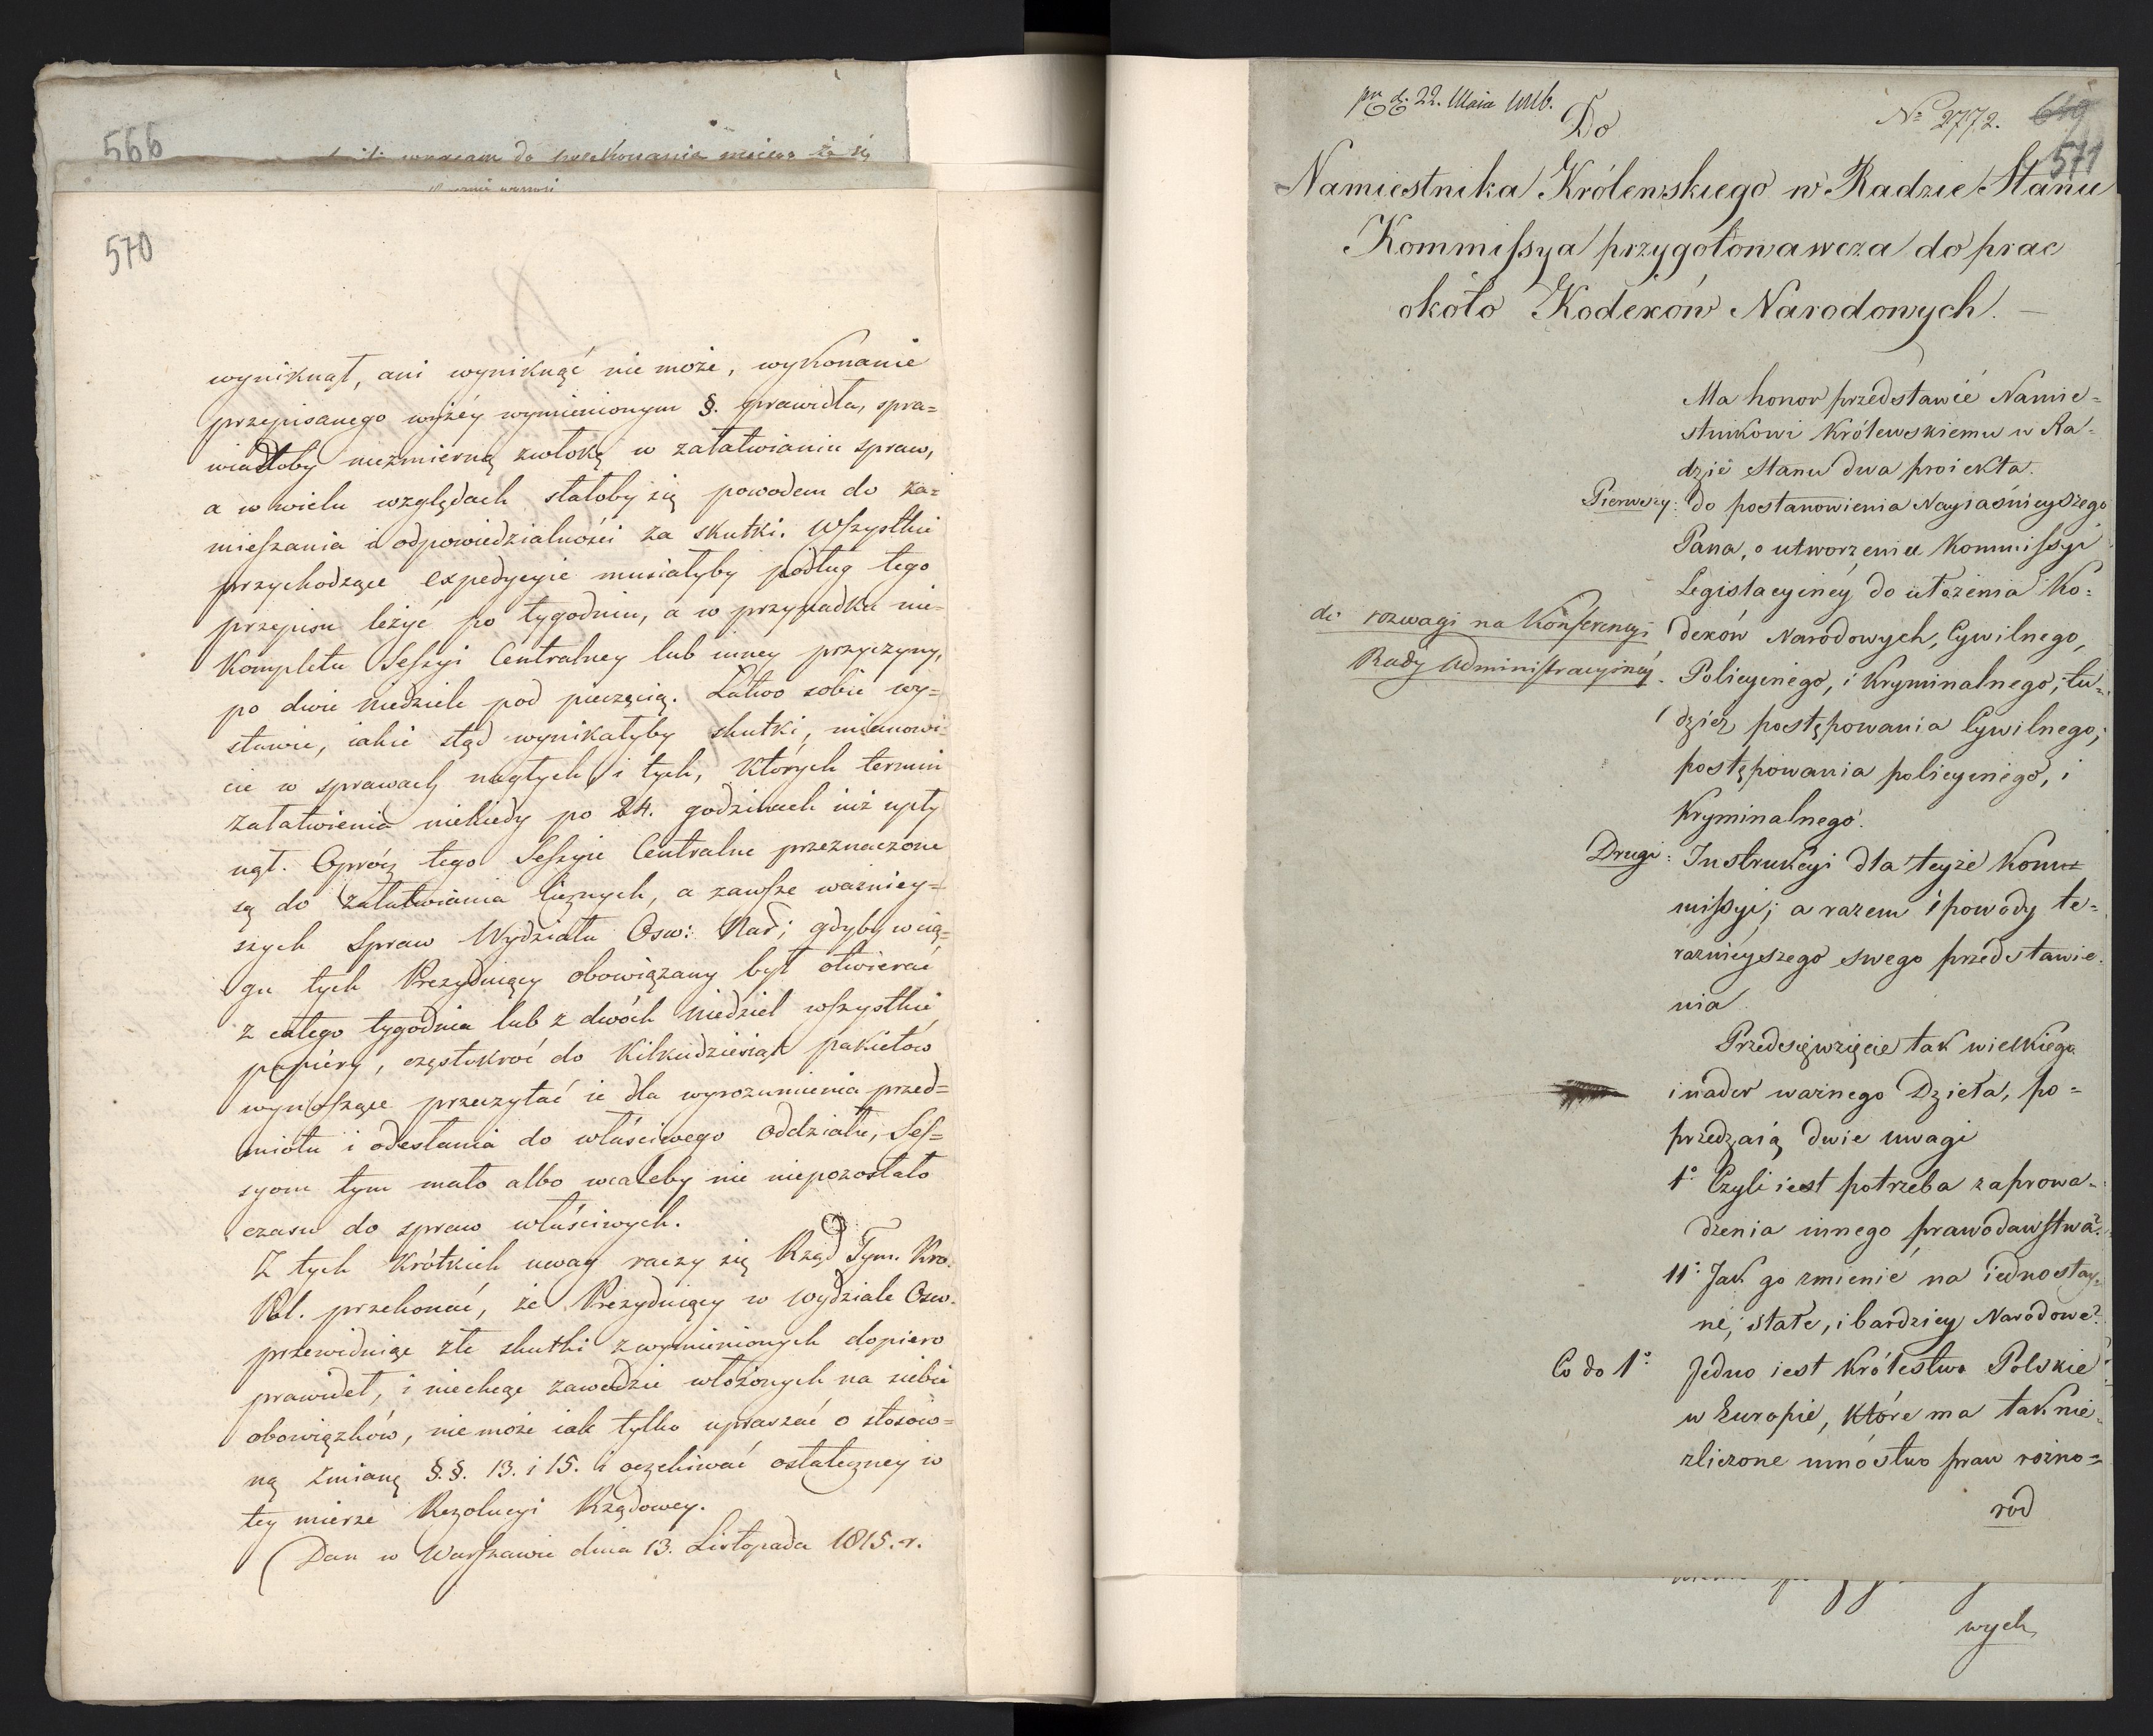 566
wracam do przekonania mojego że się
570
wyniknął, ani wyniknąć nie może, wykonanie
przepisanego wyżéy wymienionym §. prawidła, spra=
wiałoby niezmierną zwłokę w załatwianiu spraw,
a w wielu względach stałoby się powodem do za=
mieszania i odpowiedzialności za skutki. Wszystkie
przychodzące expedycyie musiałyby podług tego
przepisu leżyć po tygodniu, a w przypadku nie=
kompletu Sessyi Centralney lub inney przyczyny,
po dwie niedziele pod pieczęcią. Łatwo sobie wy=
stawić, iakie stąd wynikałyby skutki, mianowi=
cie w sprawach nagłych i tych, których termin
załatwienia niekiedy po 24. godzinach iuż upły
nął. Oprócz tego Sessyie Centralne przeznaczone
są do załatwiania licznych, a zawsze ważniey=
szych Spraw Wydziału Osw: Nar; gdyby w cią=
gu tych Prezyduiący obowiązany był otwierać
z całego tygodnia lub z dwóch Niedziel wszystkie
papiéry, częstokroć do kilkudziesiąt pakietów
wynoszące przeczytać ie dla wyrozumienia przed=
miotu i odesłania do właściwego oddziału, Ses=
syom tym mało albo wcaleby nie niepozostało
czasu do spraw właściwych.
Z tych krótkich uwag raczy się Rząd Tym. Kró.
Pol. przekonać, że Prezyduiący w Wydziale Osw.
przewiduiąc złe skutki z wymienionych dopiero
prawideł, i niechcąc zawedzie włożonych na siebie
obowiązków, nie może iak tylko upraszać o stosow=
ną zmianę §.§. 13. i 15. i oczekiwać ostateczney w
tey mierze Rezolucyi Rządowey.
Dan w Warszawie dnia 13. Listopada 1815. r.
pr d. 22. Maia 1816.
Do
No 2772.
619
571
Namiestnika Królewskiego w Radzie Stanu
Kommissya przygotowawcza do prac
około Kodexów Narodowych. —
Ma honor przedstawić Namie=
stnikowi Królewskiemu w Ra=
dzie Stanu dwa proiekta.
Pierwszy: do postanowienia Nayiaśnieyszego
Pana, o utworzeniu Kommissyi
Legislacyinéy do ułożenia Ko=
do rozwagi na Konferencyi
Rady Administracyinéy.
dexów Narodowych, Cywilnego,
Policyinego, i Kryminalnego, tu=
dzież postępowania Cywilnego;
postępowania policyinego, i
Kryminalnego.
Drugi: Instrukcyi dla teyże Kom=
missyi; a razem i powody te=
raznieyszego swego przedstawie=
nia
Przedsięwzięcie tak wielkiego
i nader ważnego Dzieła, po=
przedzaią dwie uwagi
1o Czyli iest potrzeba zaprowa=
dzenia innego prawodawstwa?
11o Jak go zmienić na iednostay=
ne, stałe, i bardziey Narodowe?
Co do 1o Jedno iest Królestwo Polskie
w Europie, które ma tak nie=
zliczone mnóstwo praw rożno=
rod
wych